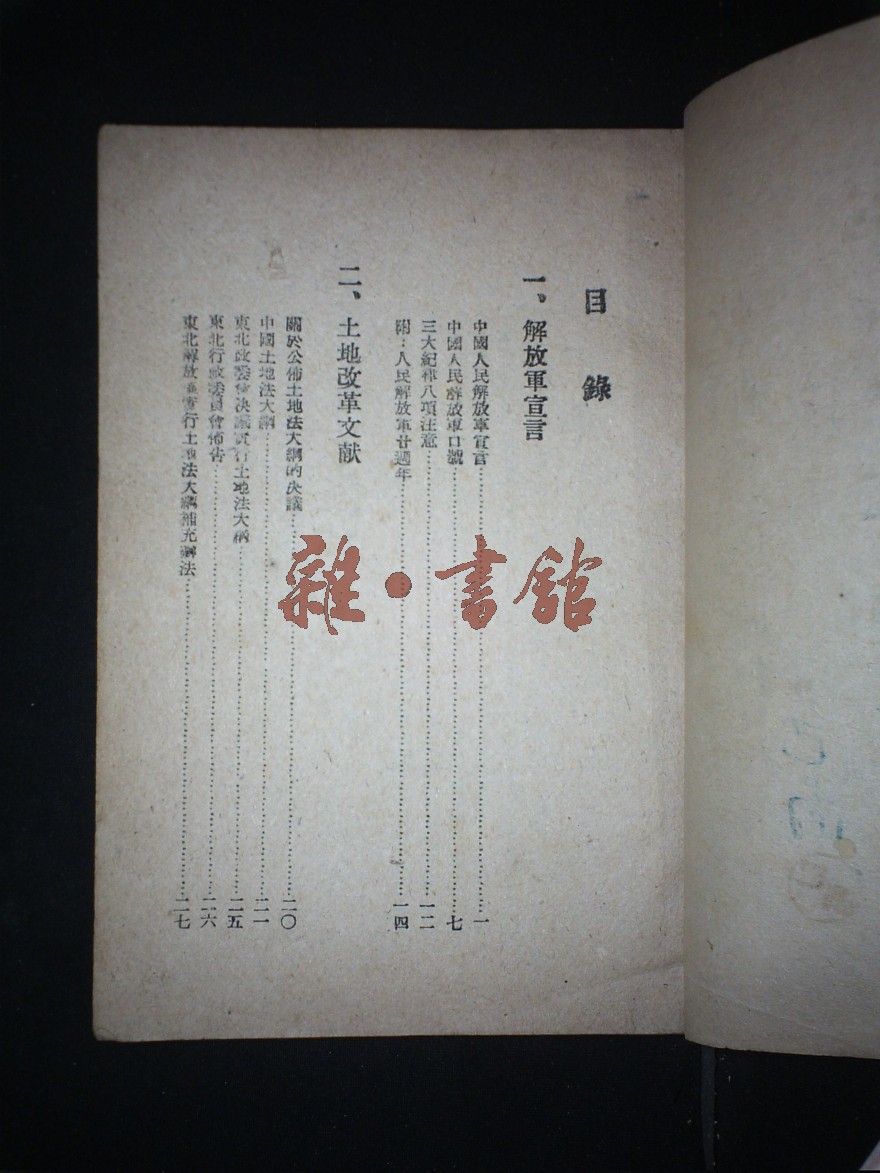 目錄
一、解放軍宣言
中國人民解放軍宣言……一
中國人民解放軍口號……七
三大紀律八項注意……一二
附：人民解放軍廿週年……一四
二、土地改革文献
關於公佈土地法大綱的決議……二〇
中國土地法大綱……二一
東北政委會決議實行土地法大綱……二五
東北行政委員會佈告……二六
東北解放區實行土地法大綱補充辦法……二七
雜·書館